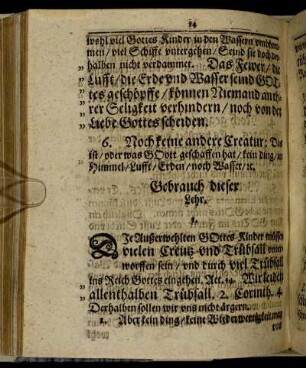 14
wohl viel Gottes Kinder in den Wassern
men / viel Schiffe untergehen / Seind sie doch
halben nicht verdammet. Das Fewer / die
Lufft / die Erde und Wasser seind GOt-
tes geschöpffe / können Niemand an
rer Seligkeit verhindern / noch von der
Liebe Gottes scheiden.
6. Noch keine andere Creatur: Das
ist / oder was GOtt geschaffen hat / kein ding / in
Himmel / Lufft / Erden / noch Wasser / ꝛc.
Gebrauch dieser
Lehr.
1.
DIe Außerwehlten GOttes Kinder müssen
vielen Creutz und Trübsall unter-
worffen sein / und durch viel Trübsall
ins Reich Gottes eingehen. Act. 14. Wir leiden
allenthalben Trübsall. 2. Corinth. 4
Derhalben sollen wir uns nicht ärgern.
2. Aber kein ding / keine Wiederwertigkeit mag